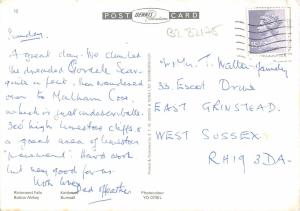 10
POST DENNIS CARD
Sunday.
A great day. We climbed
the dreaded Gordale Scar -
quite a feat! then wandered
over to Malham Cove,
which is just indescribable.
300 high limestone cliffs &
a great area of limestone
"pavement". Hard work
but very good for us.
With love
Dad & Heather
Mr & Mrs. T. Waller & family
33. Escot Drive
EAST GRINSTEAD.
WEST SUSSEX.
RH19 3DA.
Richmond Falls Kettlewell
Bolton Abbey Burnsall
Photocolour